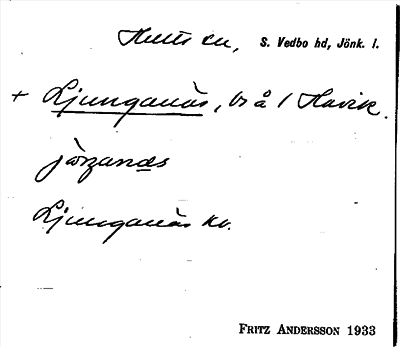 Hults sn, S. Vedbo hd, Jönk. l.
+ Ljunganäs, by å / Havik.
jòŋanæs
Ljunganäs kv.
FRITZ ANDERSSON 1933